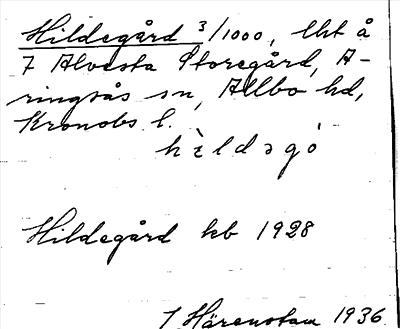 Hildegård 3/1000, lht å
7 Alvesta Storegård, A-
ringsås sn, Allbo hd,
Kronobs l.
hìldəgó
Hildegård kb 1928
1936